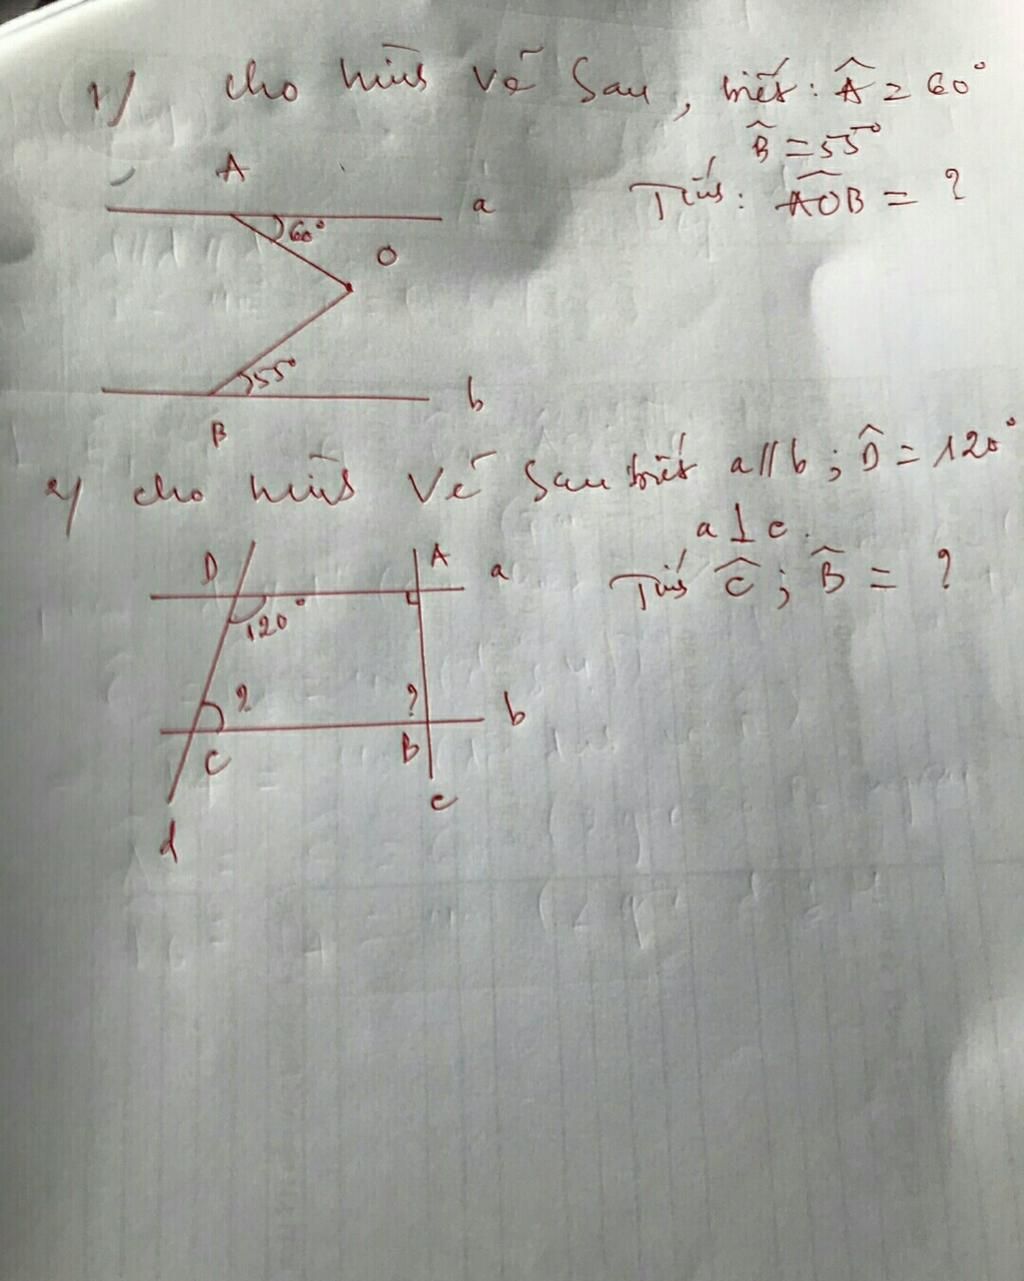 1/ Cho hình vẽ sau, biết: Â = 60°
B̂ = 55°
Tính: AÔB = ?
A
a
60°
O
55°
b
B
2/ Cho hình vẽ sau biết a//b; D̂ = 120°
a ⊥ c.
Tính Ĉ; B̂ = ?
D
A
a
120°
?
?
b
C
B
c
d